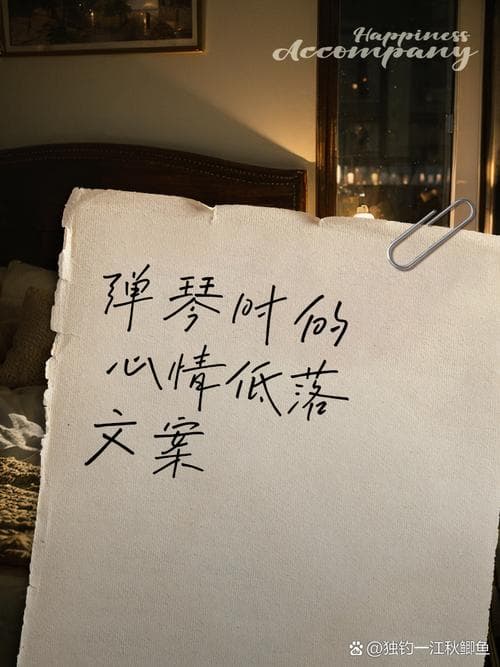 Happiness
Accompany
弹琴时的
心情低落
文案
@独钓一江秋鲫鱼